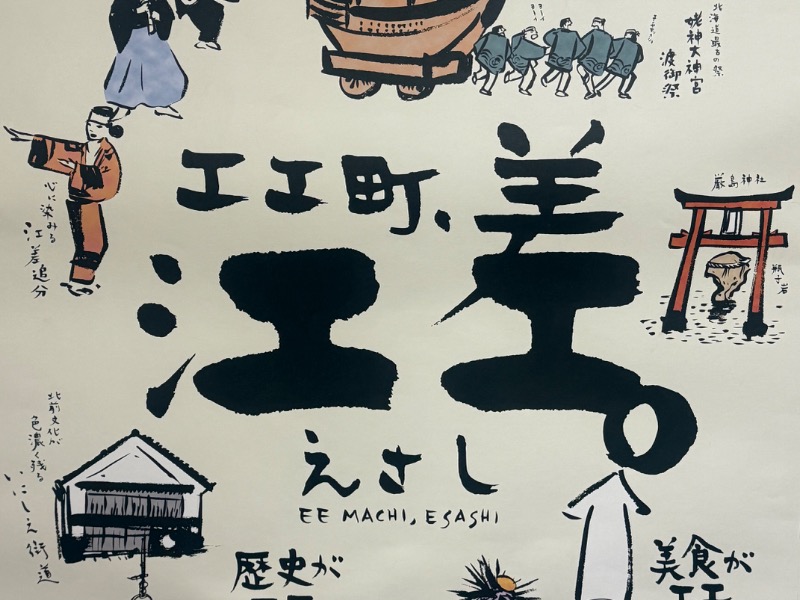 北海道最古の祭
姥神大神宮
渡御祭
エエ町、
江差。
えさし
EE MACHI, ESASHI
厳島神社
瓶子岩
心に染みる
江差追分
北前文化が
色濃く残る
いにしえ街道
歴史が
美食が
エエ